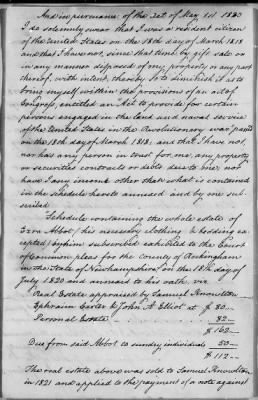 And in pursuance of the Act of May 1st 1820
I do solemnly swear that I was a resident citizen
of the United States on the 18th day of March 1818
and that I have not, since that time, by gift sale or
in any manner disposed of my property or any part
thereof, with intent, thereby so to diminish it as to
bring myself within the provisions of an act of
Congress, entitled an "Act to provide for certain
persons engaged in the land and naval service
of the United States in the Revolutionary war" passed
on the 18th day of March 1818: and that I have not,
nor has any person in trust for me, any property
or securities contracts or debts due to me nor
have I any income other than what is contained
in the schedule hereto annexed and by me sub-
scribed
Schedule containing the whole estate of
Ezra Abbot (his necessary clothing & bedding ex
cepted) by him subscribed exhibited to the Court
of Common pleas for the County of Rockingham
in the State of Newhampshire on the 18th day of
July 1820 and annexed to his oath viz
Real Estate appraised by Samuel Knowlton
Ephraim & John A Elliot at $ 80—
Personal Estate 82—
$ 162—
Due from said Abbot to sundry individuals 50—
$ 112—
The real estate above was sold to Samuel Knowlton
in 1821 and applied to the payment of a note against